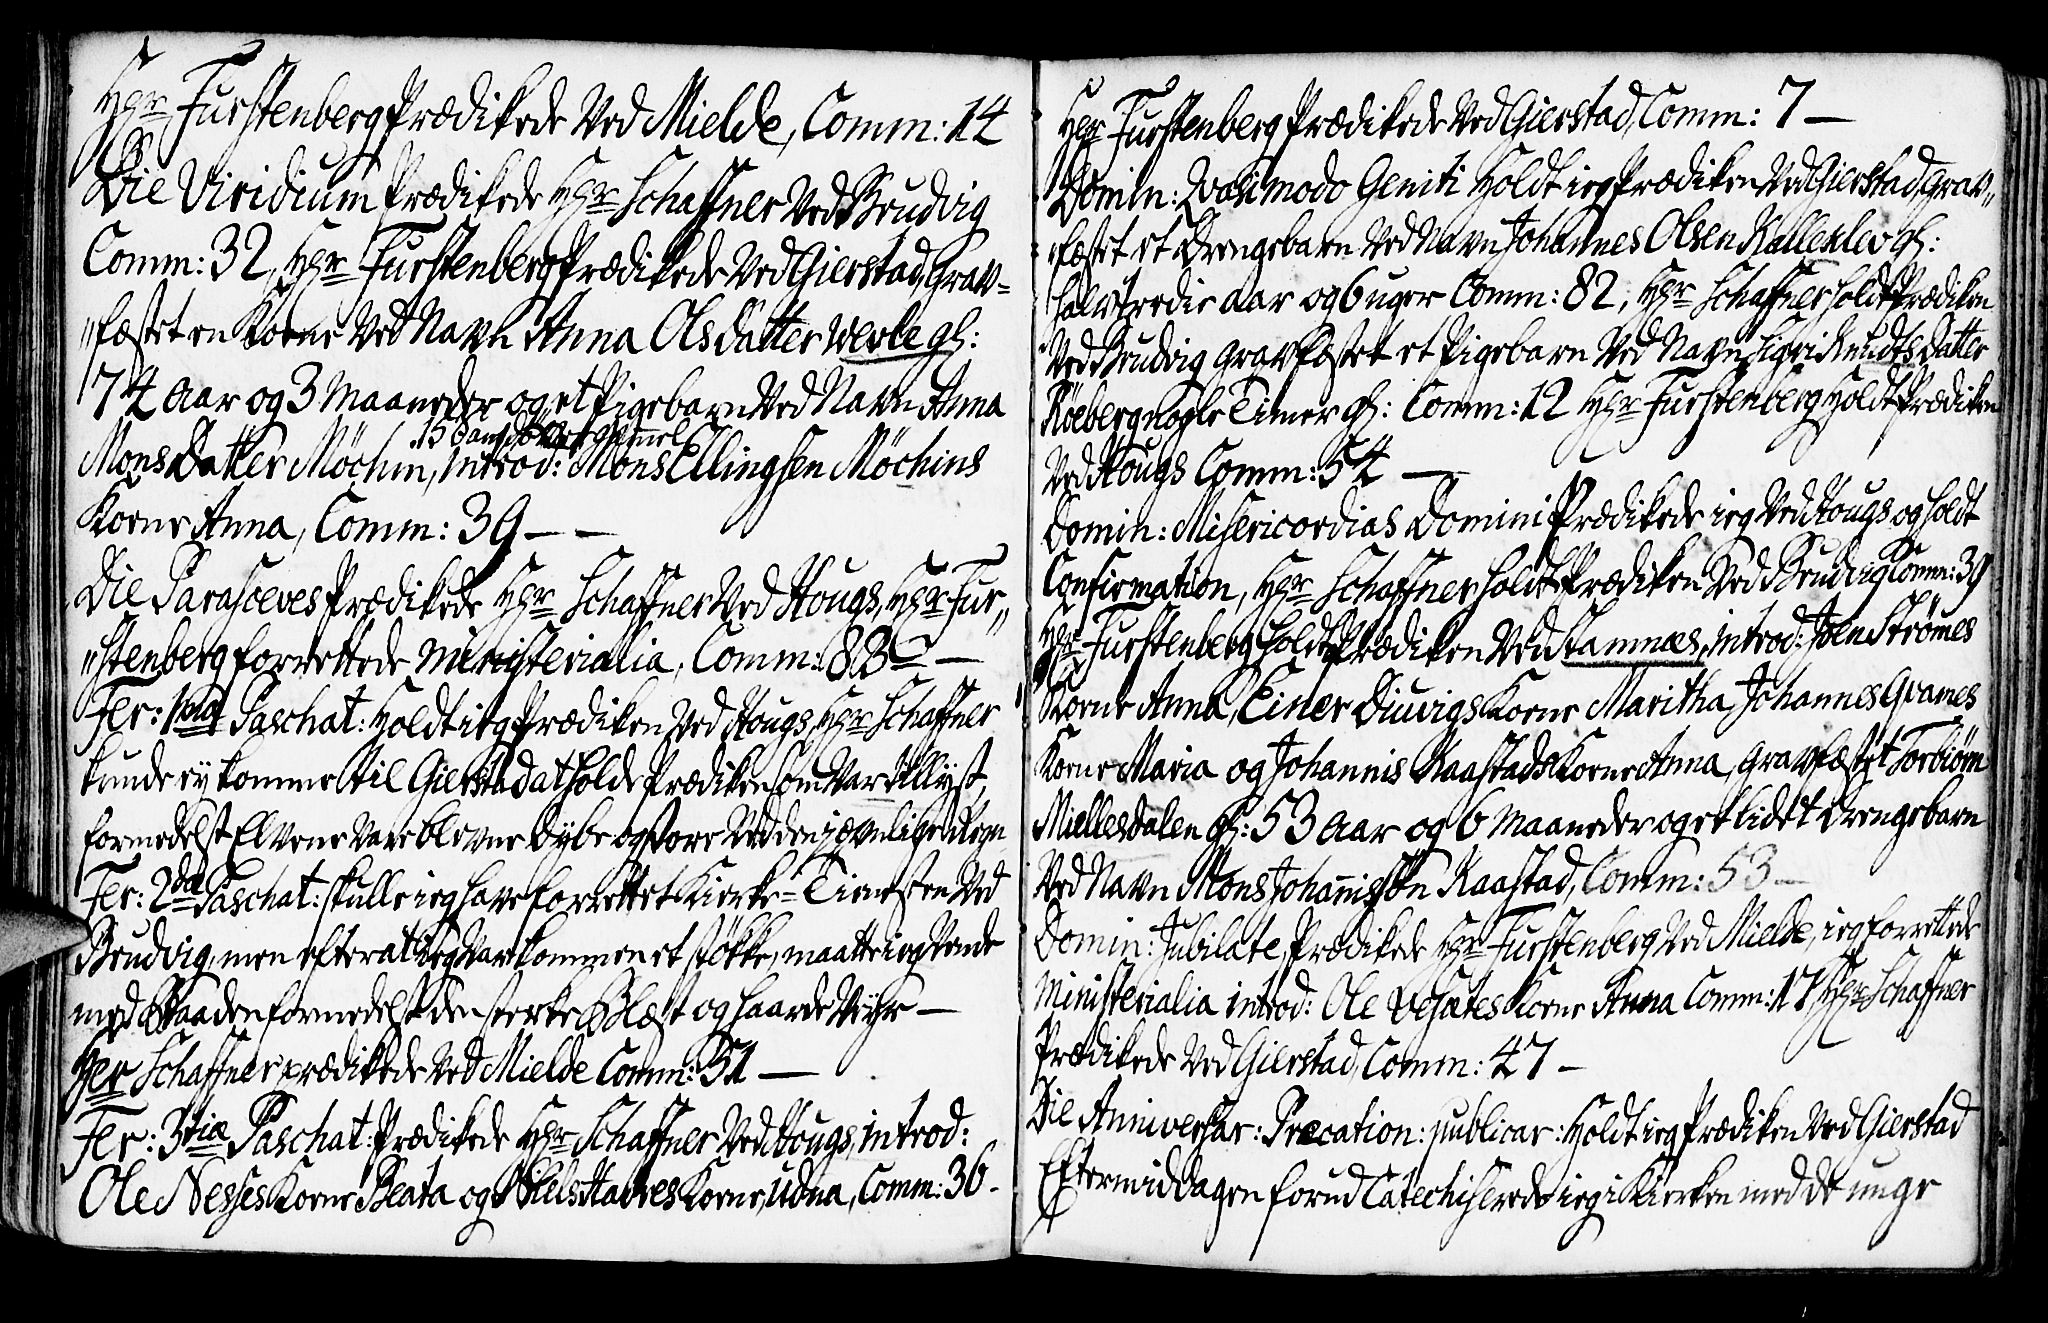 Hr Furstenberg Prædikede Ved Mielde, Comm: 14
Die Viridium Prædikede Hr Schaffner Ved Brudvig
Comm: 32, Hr Furstenberg Prædikede Ved Gierstad, Grav=
„fæstet en Kone Ved Navn Anna Olsdatter Werle gl:
74 Aar og 3 Maaneder og et Pigebarn Ved Navn Anna
15 gammel
Mons Datter Möchin, introd: Mons Ellingsen Möchins
Kone Anna, Comm: 39 — —
Die Parasceves Prædikede Hr Schaffner Ved Hougs, Hr Fur„
„stenberg forrettede Ministerialia, Comm: 83 —
Fer: 1ma Paschat: Holdt ieg Prædiken Ved Hougs, Hr Schaffner
kunde ey komme til Gierstad at holde Prædiken som Var tillyst,
formedelst Elvene Vare blevne dybe og store Ved den jævnlige Regn
Fer: 2da Paschat: skulle ieg have forrettet Kierke=Tienesten Ved
Brudvig, men efter at ieg Var kommen et støkke, maatte ieg Vende
med Baaden formedelst den sterke Blæst og haarde Vejr —
Her Schaffner prædikede Ved Mielde Comm: 51 —
Fer: 3tiæ Paschat: Prædikede Hr Schaffner Ved Hougs, introd:
Ole Nesses Kone Beata og Niels Havres Kone, Udna, Comm: 36 -
Hr Furstenberg Prædikede Ved Gierstad, Comm: 7 —
Domin: Qvasimodo Geniti Holdt ieg Prædiken Ved Gierstad, Grav„
„fæstet et Drengebarn Ved Navn Johannes Olsen Kalleklev gl:
halvtredie aar og 6 uger Comm: 82, Hr Schaffner holdt Prædiken
Ved Brudvig Gravfæstet et Pigebarn Ved Navn Sigri Knudts Datter
Röeberg nogle Timer gl: Comm: 12 Hr Furstenberg Holdt Prædiken
Ved Hougs Comm: 54 —
Domin: Misericordias Domini Prædikede ieg Ved Hougs og holdt
Confirmation, Hr Schaffner holdt Prædiken Ved Brudvig Comm: 39
Hr Furstenberg holdt Prædiken Ved Stamnæs, introd: Joen Strömes
Kone Anna, Einer Diuvigs Kone Maritha, Johannes Qvames
Kone Maria og Johannis Kaastads Kone Anna, Gravfæstet Torbiörn
Miellesdalen gl: 53 Aar og 6 Maaneder og et lidet Drengebarn
Ved Navn Mons Johannissön Kaastad, Comm: 53 —
Domin: Jubilate, Prædikede Hr Furstenberg Ved Mielde, ieg forrettede
Ministerialia introd: Ole Kone Anna Comm: 17, Hr Schaffner
Prædikede Ved Gierstad, Comm: 47 —
Die Anniversar: Precation: publicar: Holdt ieg Prædiken Ved Gierstad
Eftermiddagen forud Catechiserede ieg i Kierken med de unge